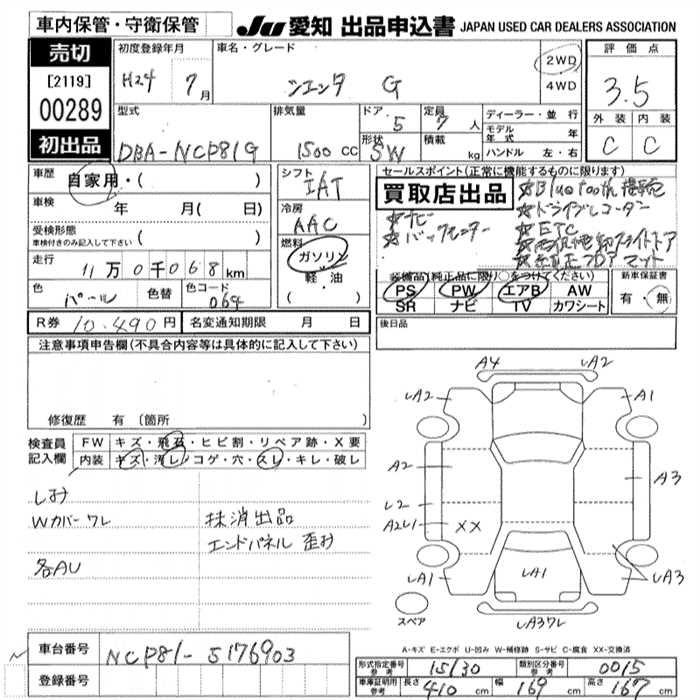 車内保管・守衛保管 JU 愛知 出品申込書 JAPAN USED CAR DEALERS ASSOCIATION
売切
[2119]
00289
初出品
初度登録年月 車名・グレード
H24 7月 シエンタ G 2WD 4WD
評価点
3.5
外装 内装
C C
型式 排気量 ドア 定員 ディーラー・並行
DBA-NCP81G 1500cc 5 7人 モデル年式 年
形状 積載 ハンドル 左・右
SW kg
車歴 自家用・( )
車検 年 月( 日)
受検形態
車検付きのみ記入して下さい ( )
走行 11万0千068km
色 パール 色替 色コード 064
シフト IAT
冷房 AAC
燃料 ガソリン・軽油
( )
セールスポイント(正常に機能するものに限ります)
買取店出品
☆ナビ
☆バックモニター
☆Bluetooth接続
☆ドライブレコーダー
☆ETC
☆純正フロアマット
装備品(純正品に限り○をつけてください) 新車保証書
PS PW エアB AW 有・無
SR ナビ TV カワシート
R券 10,490円 名変通知期限 月 日
後日品
注意事項申告欄(不具合内容等は具体的に記入して下さい)
修復歴 有 (箇所
検査員記入欄 FW キズ・飛石・ヒビ割・リペア跡・X要
内装 キズ・汚レ・コゲ・穴・スレ・キレ・破レ
しみ
Wカバーワレ 抹消出品
エンドパネル 歪み
各AU
A4 UA2
UA2 A1
A2 A3
U2
A2U1 XX
UA1 UA1 UA3
UA37U
スペア
A-キズ E-エクボ U-凹み W-補修跡 S-サビ C-腐食 XX-交換済
車台番号 NCP81-5176903
登録番号
形式指定番号 参考 15130 類別区分番号 参考 0015
車庫証明用 参考 長さ 410cm 幅 169cm 高さ 167cm